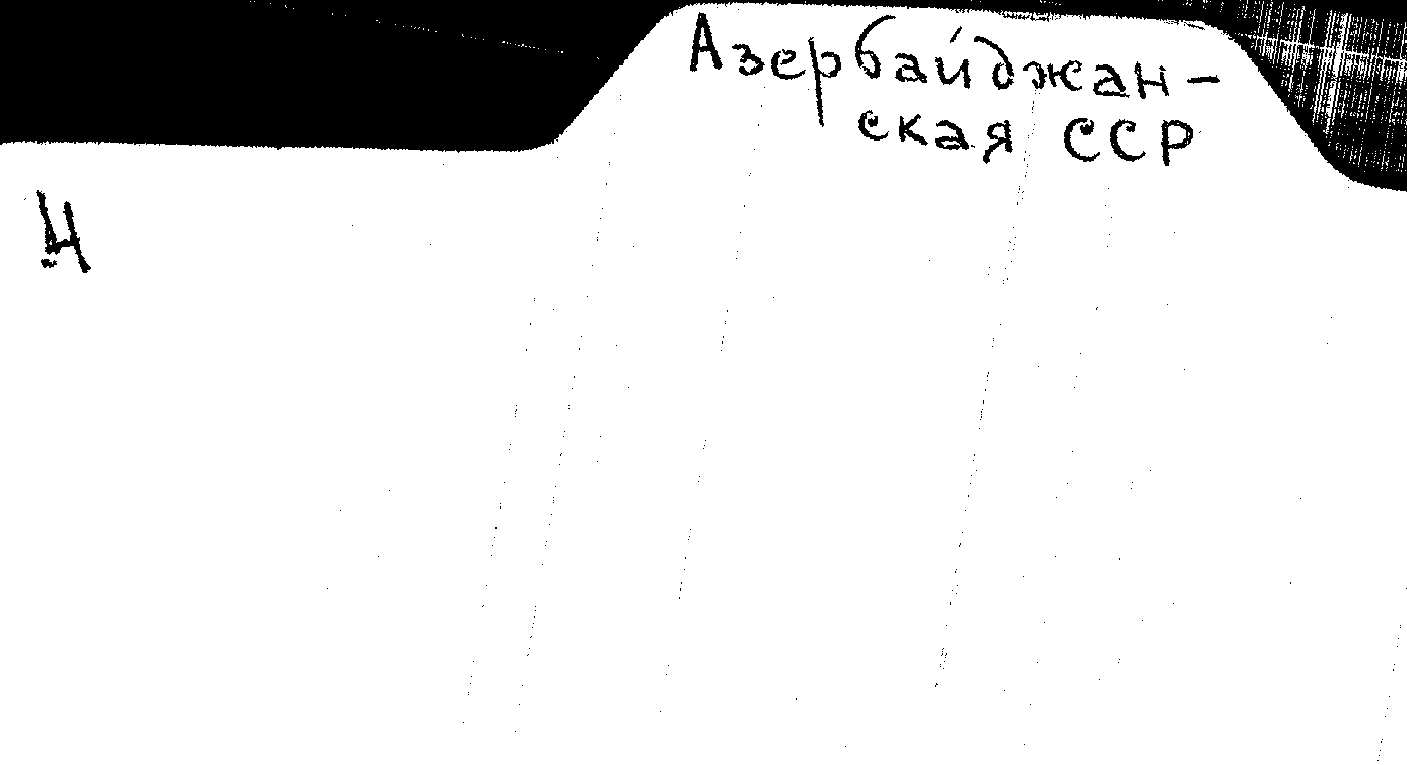 Азербайджан-
ская ССР